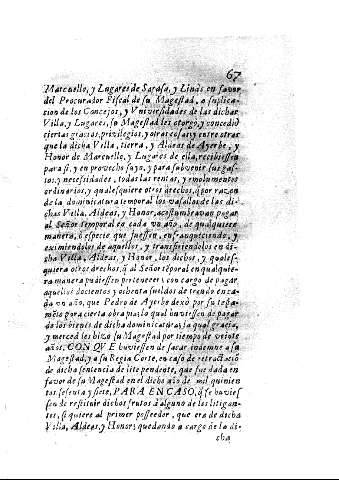 67
Marcuello, y Lugares de Sarasa, y Linàs en favor
del Procurador Fiscal de su Magestad, a suplica-
cion de los Concejos, y Universidades de las dichas
Villa, y Lugares, su Magestad les otorgò, y concediò
ciertas gracias, privilegios, y otras cosas, y entre otras
que la dicha Villa, tierra, y Aldeas de Ayerbe, y
Honor de Marcuello, y Lugares de ella, recibiessen
para sì, y en provecho suyo, y para subvenir sus gas-
tos, y necessidades, todas las rentas, y emolumentos
ordinarios, y qualesquiere otros drechos, q̃ por razon
de la dominicatura temporal los vasallos de las di-
chas Villa, Aldeas, y Honor, acostumbravan pagar
al Señor temporal en cada un año, de qualquiere
manera, ò especie que fuessen, enfranqueciendo, y
eximiendolos de aquellos, y transfiriendolos en di-
cha Villa, Aldeas, y Honor, los dichos, y quales-
quiera otros drechos, q̃ al Señor tẽporal en qualquie-
ra manera pudiessen pertenecer; con cargo de pagar
aquellos docientos y ochenta sueldos de treudo en ca-
da un año, que Pedro de Ayerbe dexò por su testa-
mẽto para cierta obra pia, lo qual huviessen de pagar
de los bienes de dicha dominicatura; la qual gracia,
y merced les hizo su Magestad por tiempo de veinte
años, CON QVE huviessen de sacar indemne a su
Magestad, y a su Regia Corte, en caso de retractaciõ
de dicha sentencia de lite pendente, que fue dada en
favor de su Magestad en el dicho año de mil quinien
tos sesenta y siete, PARA EN CASO, q̃ se huvies-
sen de restituir dichos frutos à alguno de los litigan-
tes, si quiere al primer posseedor, que era de dicha
Villa, Aldeas, y Honor; quedando a cargo de la di-
cha